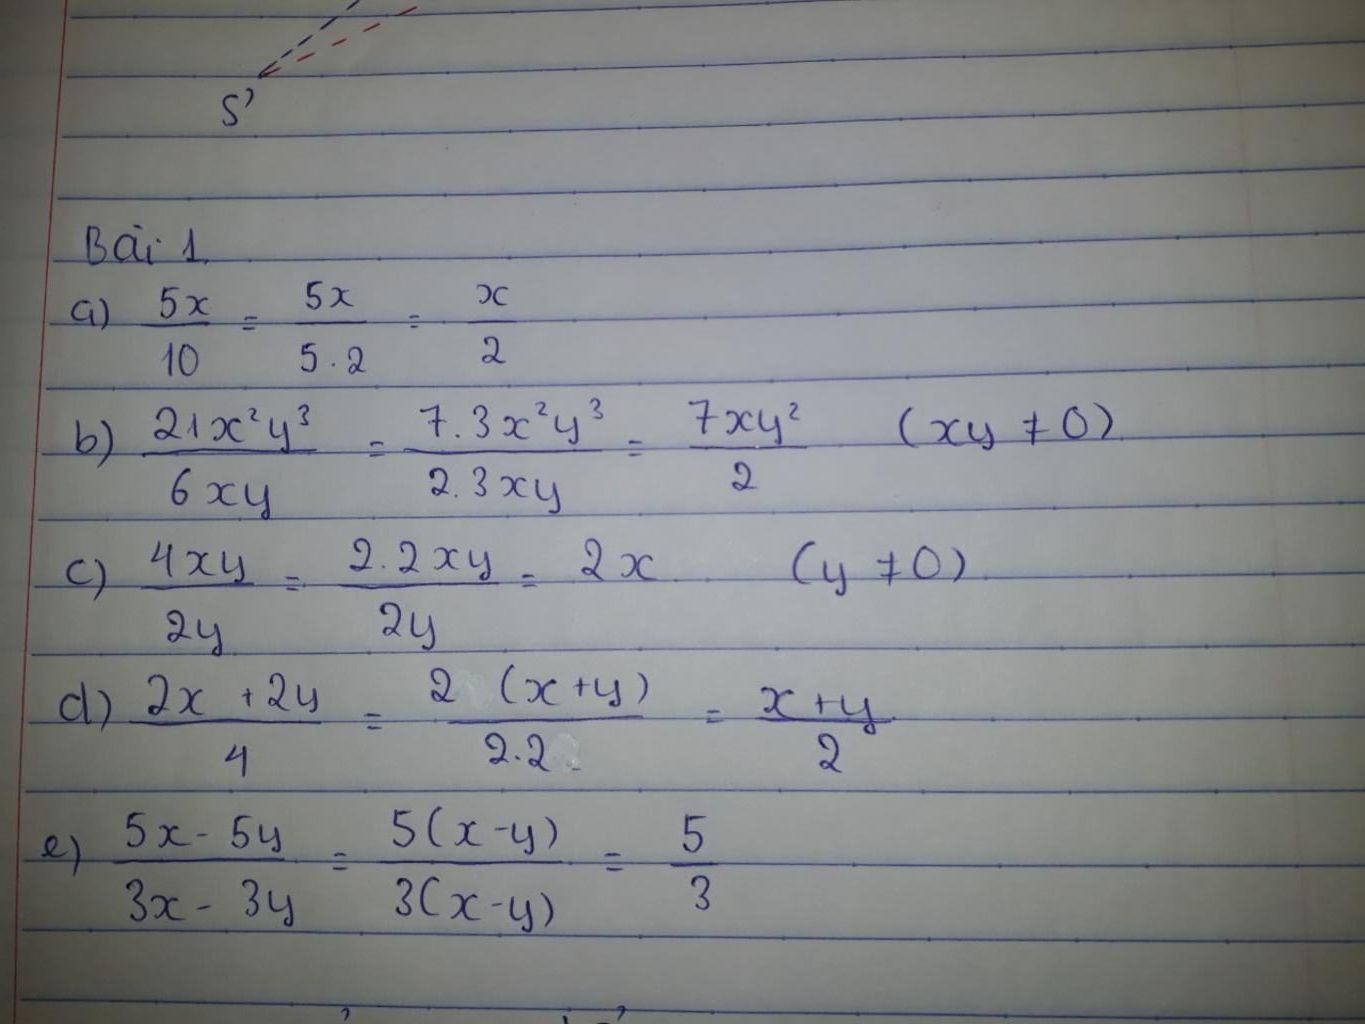 S'
Bài 1.
a) 5x/10 = 5x/5.2 = x/2
b) 21x²y³/6xy = 7.3x²y³/2.3xy = 7xy²/2 (xy ≠ 0)
c) 4xy/2y = 2.2xy/2y = 2x (y ≠ 0)
d) 2x + 2y/4 = 2 (x+y)/2.2 = x+y/2
e) 5x - 5y/3x - 3y = 5(x-y)/3(x-y) = 5/3